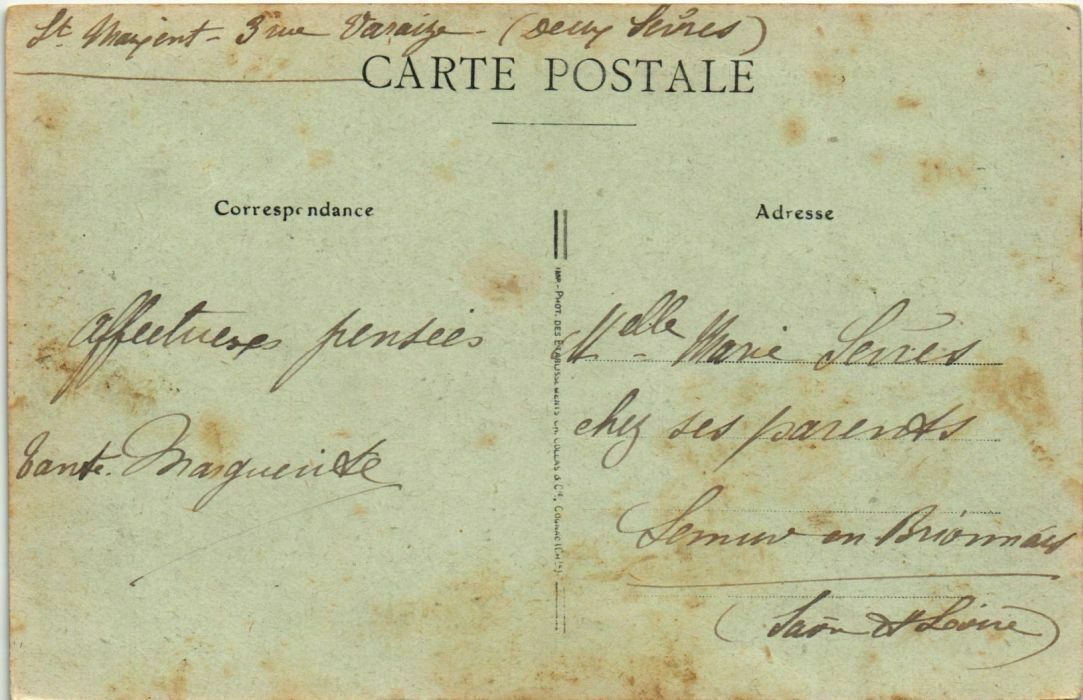 St Maixent - 3 rue Varaize - (Deux Sèvres)
CARTE POSTALE
Correspondance
Adresse
affectueuses pensées
Tante Marguerite
IMP.-PHOT. DES ETABLISSEMENTS CH. COLLAS & Cie, COGNAC (Chte).
Melle Marie Serres
chez ses parents
Semur en Brionnais
(Saône & Loire)